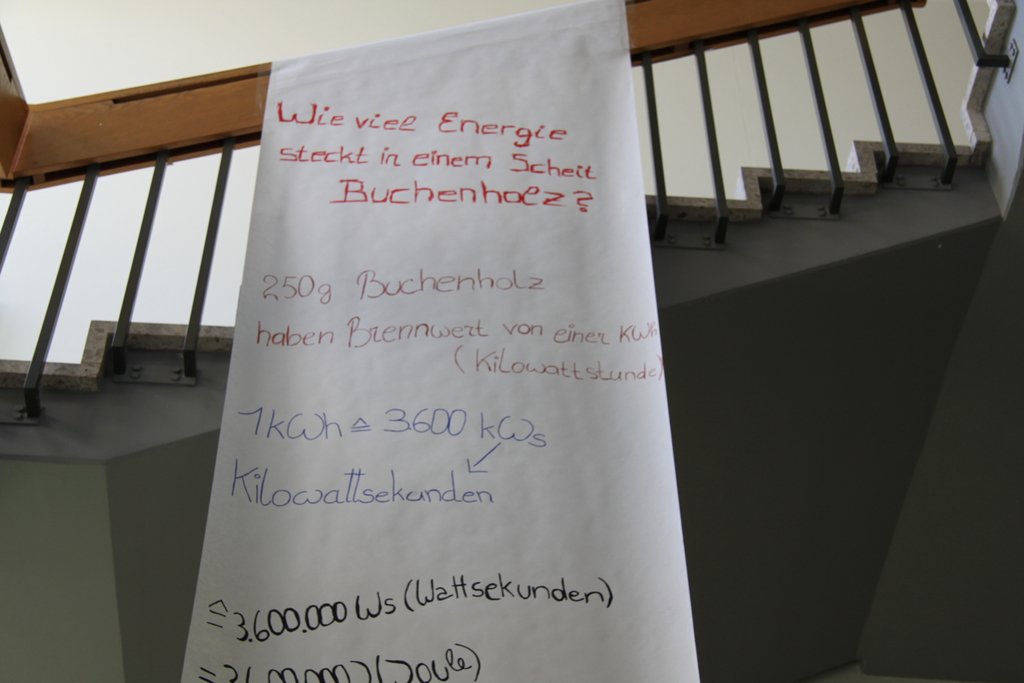 Wie viel Energie
steckt in einem Scheit
Buchenholz?
250g Buchenholz
haben Brennwert von einer KWh
(Kilowattstunde)
1kWh ≙ 3.600 kWs
Kilowattsekunden
≙ 3.600.000 Ws (Wattsekunden)
(Joule)